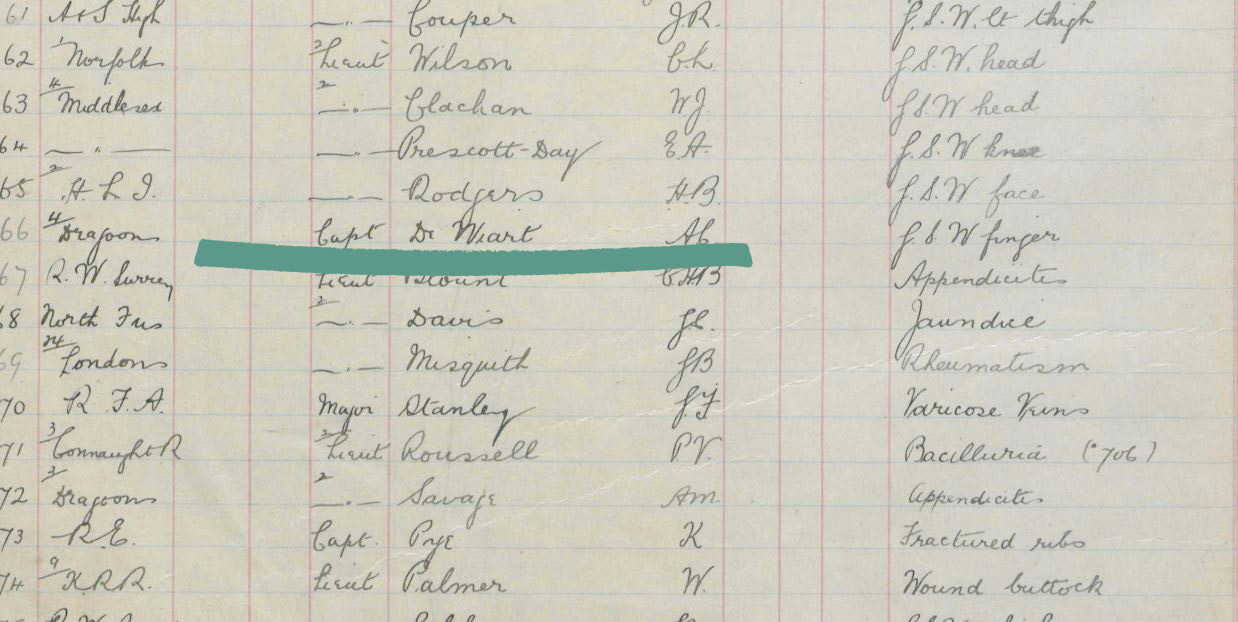 61 A & S High —"— Couper J.R. G.S.W. lt thigh
62 1 Norfolk 2 Lieut Wilson C.L. G.S.W. head
63 4 Middlesex 2 —"— Clachan W.J. G.S.W head
64 —"— —"— Prescott-Day E.A. G.S.W knee
65 2 H.L.I. —"— Rodgers H.B. G.S.W face
66 4 Dragoons Capt De Wiart AC G.S.W finger
67 R.W. Surrey Lieut Blount CHB Appendicites
68 North Fus 2 —"— Davis Jaundice
69 24 Londons —"— Mesquith GB Rheumatism
70 R.F.A. Major Stanley Varicose Veins
71 3 Connaught R 2 Lieut Roussell P.V. Bacilluria ('706)
72 3 Dragoons 2 —"— Savage A.M. Appendicites
73 R.E. Capt. Pye K Fractured ribs
74 9 K.R.R. Lieut Palmer W. Wound buttock